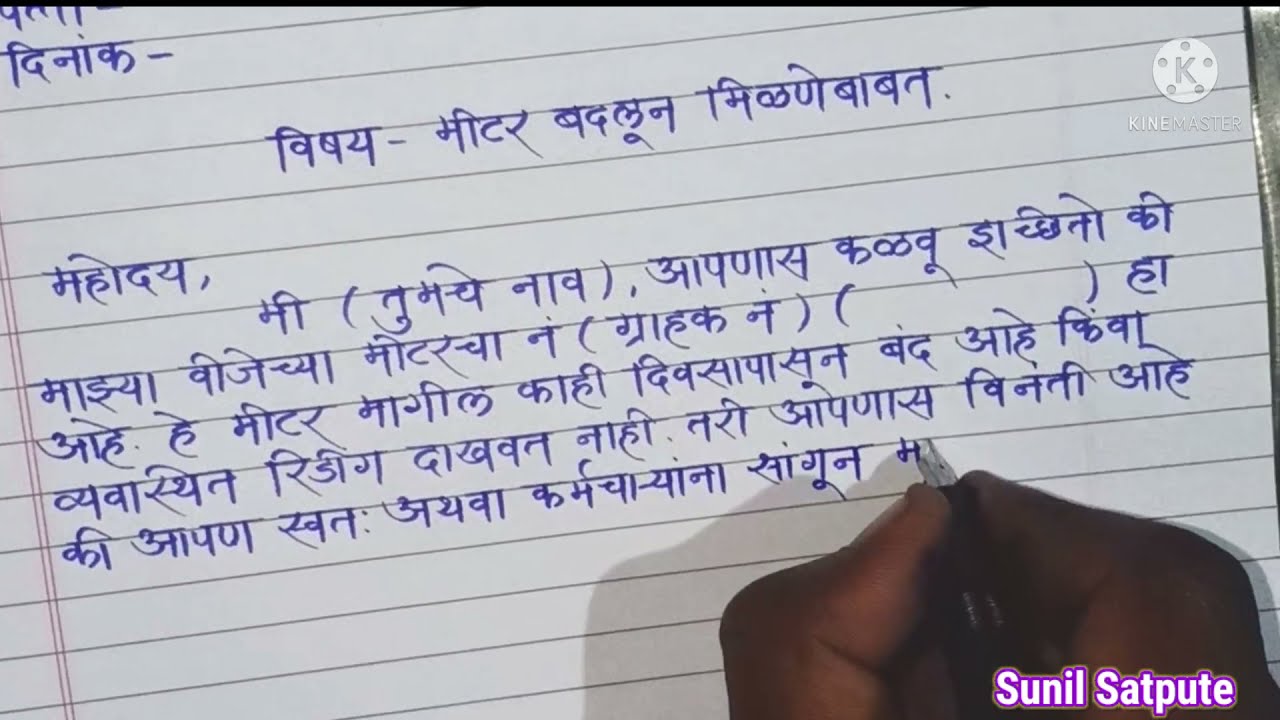 पत्ता-
दिनांक-
विषय- मीटर बदलून मिळणेबाबत.
महोदय,
मी (तुमचे नाव), आपणास कळवू इच्छितो की
माझ्या वीजेच्या मीटरचा नं (ग्राहक नं) ( ) हा
आहे. हे मीटर मागील काही दिवसापासून बंद आहे किंवा
व्यवास्थित रिडींग दाखवत नाही. तरी आपणास विनंती आहे
की आपण स्वतः अथवा कर्मचाऱ्यांना सांगून म
K
KINEMASTER
Sunil Satpute